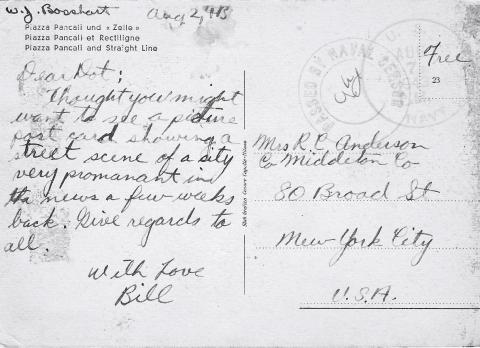 W. J. Bosshart
Aug 2, 43
Piazza Pancali und « Zeile »
Piazza Pancali et Rectiligne
Piazza Pancali and Straight Line
Dear Dot;
Thought you might
want to see a picture
post card showing a
street scene of a city
very promanant in
the news a few weeks
back. Give regards to
all.
With Love
Bill
PASSED BY NAVAL CENSOR
Free
23
Mrs R. C. Anderson
Co Middleton Co
80 Broad St
New York City
U.S.A.